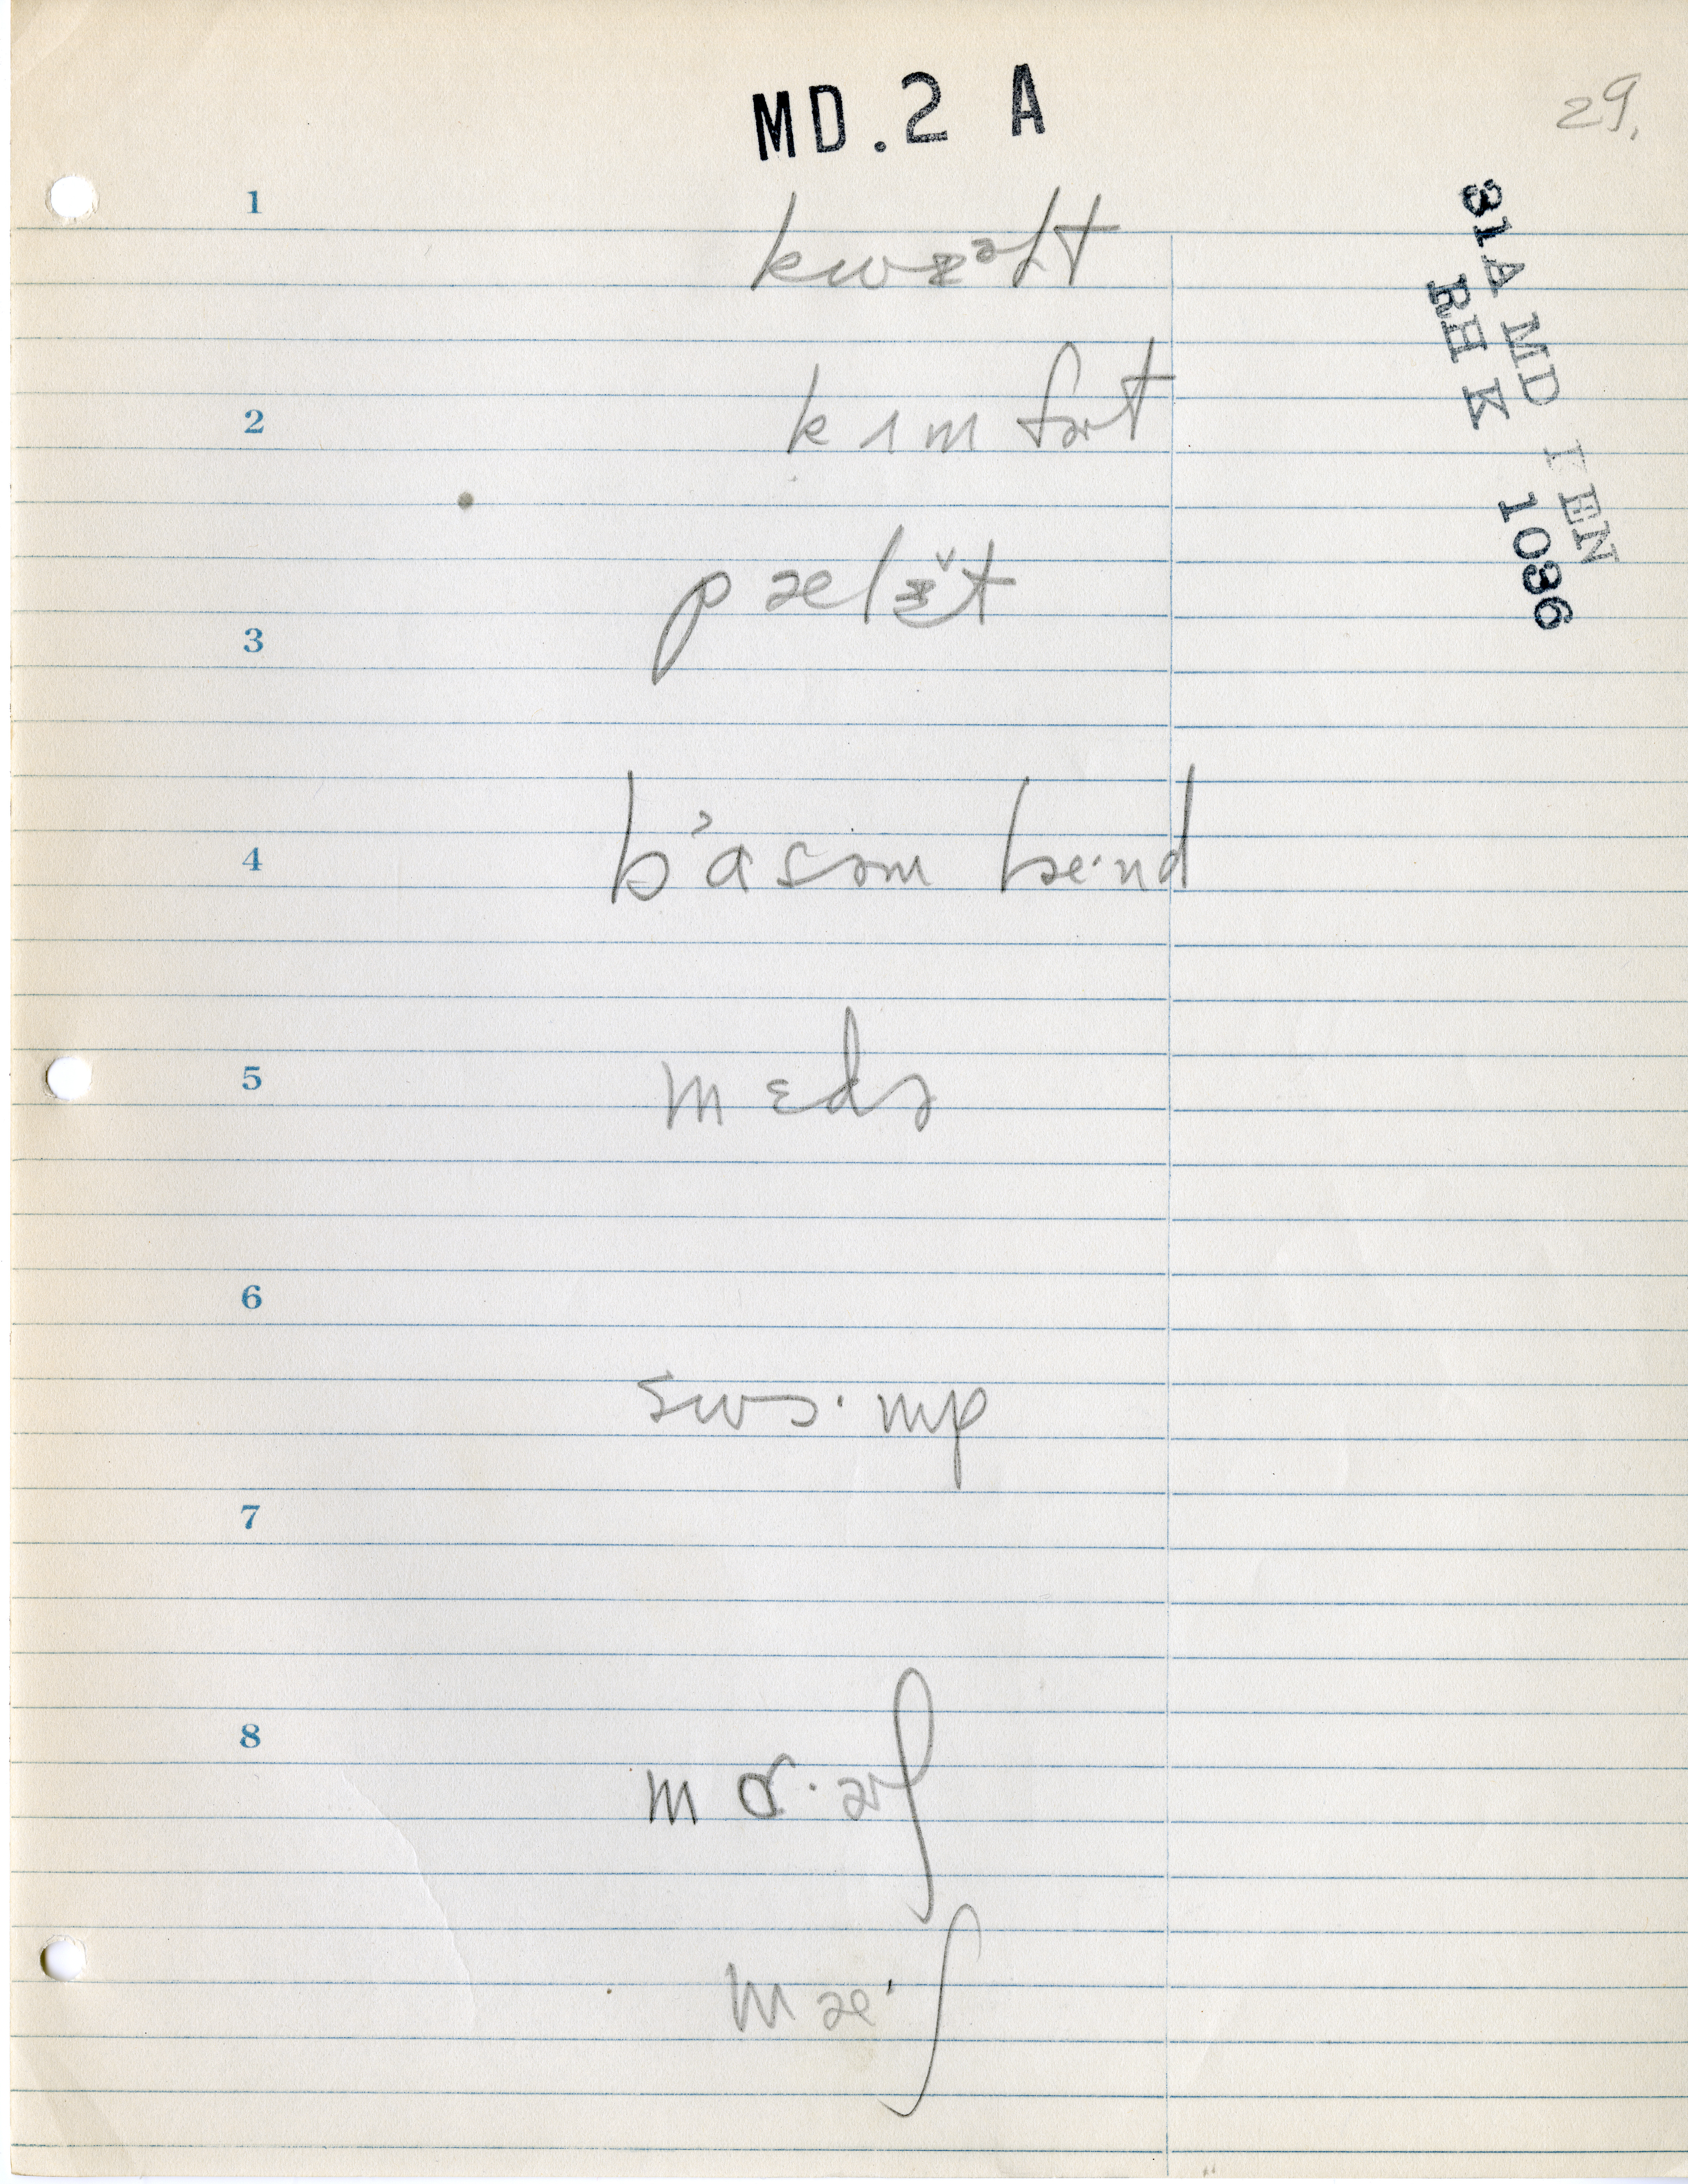 MD.2 A
29.
31A MD FEN
RHK 1036
1
kwɪᵊlt
2
kɪmfɚt
3
pælɪ̆t
4
bɒ'asəm læ·nd
5
mɛdə
6
swɔ·mp
7
8
mɑ·ɚʃ
mæ·ʃ